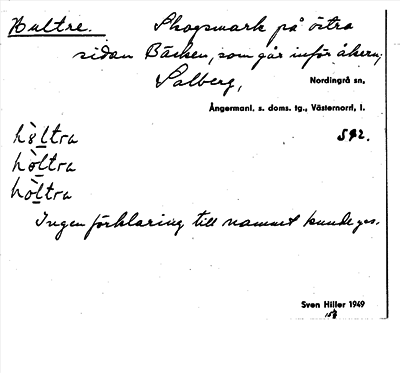 Hultre. Skogsmark på östra
sidan Bäcken, som går inför åkern;
Salberg, Nordingrå sn,
Ångermanl. s. doms. tg., Västernorrl. l.
hòltra 592.
hòltra
hòltra
Ingen förklaring till namnet kunde ges.
Sven Hiller 1949